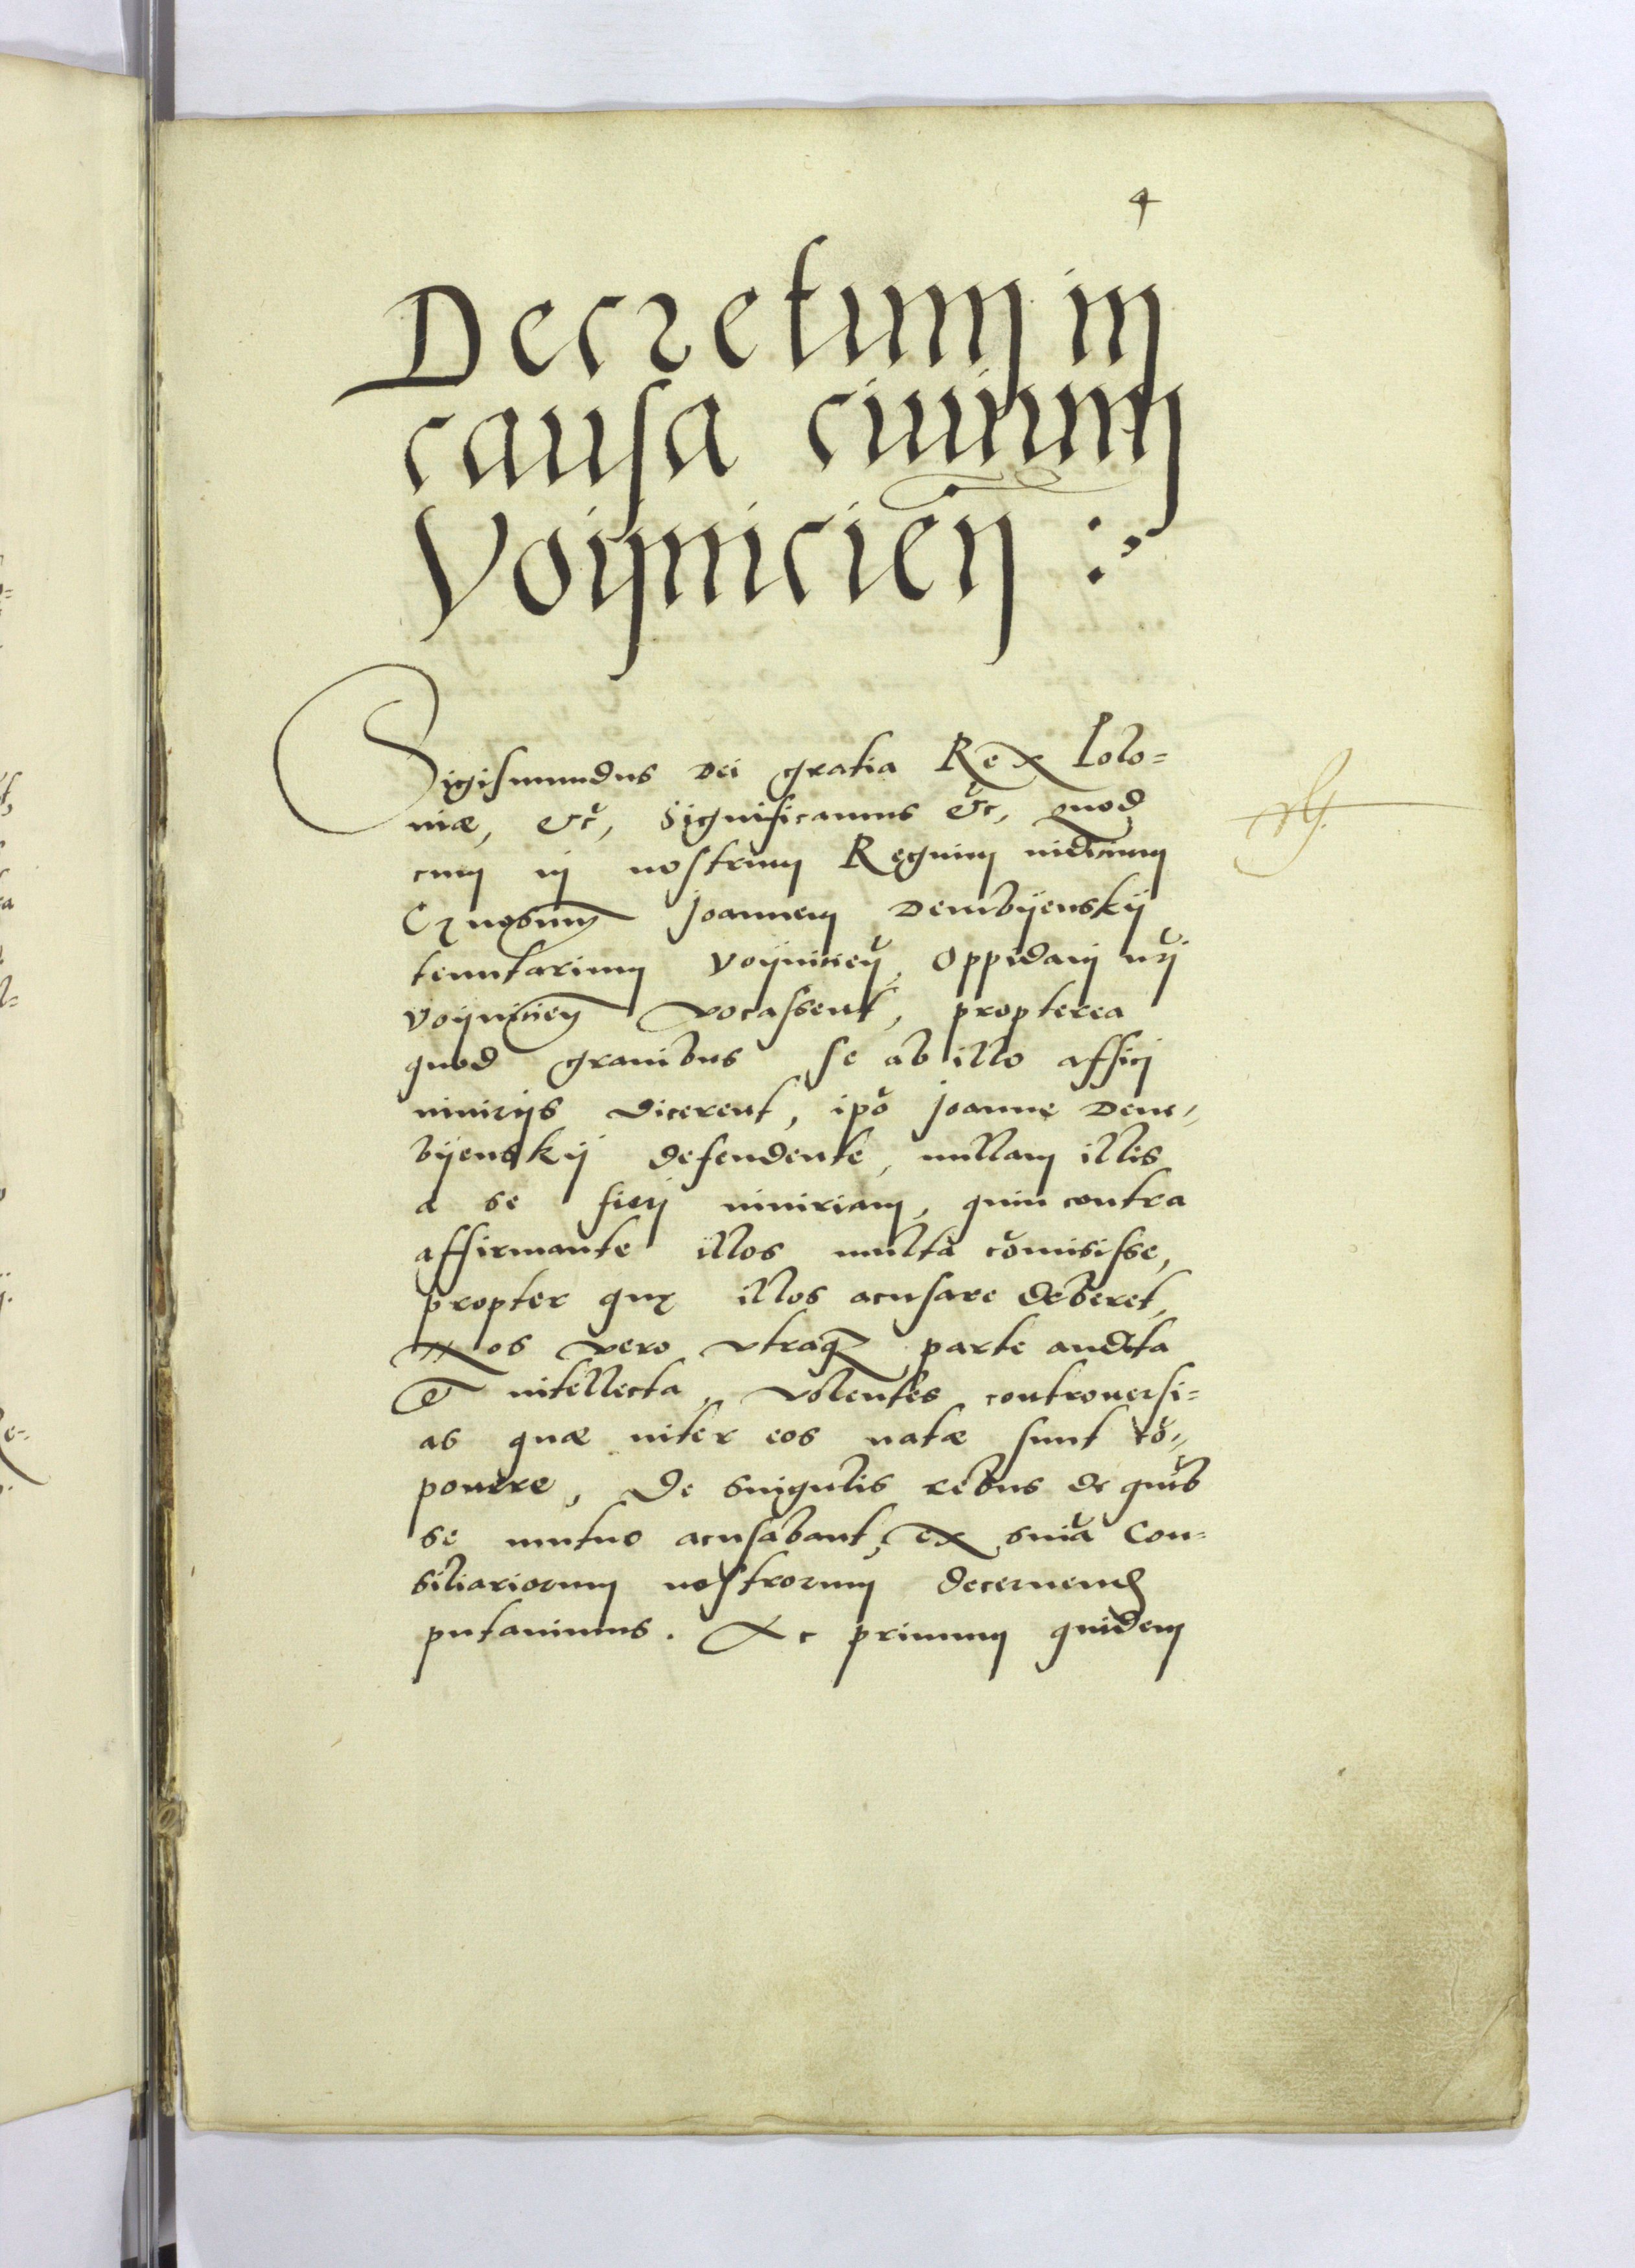 4
Decretum in
causa ciuium
Voijnicien̄ :
Sigismundus Dei gratia Rex Polo=
niæ, etc̃, Significamus etc, quod
cum in nostrum Regium iudicium
Joannem Dembijenskij
tenutarium Voijnicien̄, Oppidani nr̃i
Voijnicien̄ vocassent, propterea
quod grauibus se ab illo affici
iniurijs dicerent, ip̃o Joanne Dem=
bijenskij defendente, nullam illis
a se fieri iniuriam, quin contra
affirmante illos multa cõmisisse,
propter quę illos acusare deberet,
Nos vero vtraq̃ parte audita
et intellecta, volentes controuersi=
as quæ inter eos natæ sunt cõ=
ponere, De singulis rebus de quib̃
se mutuo acusabant, ex s̃nia Con=
siliariorum nostrorum decernend
putauimus. Ac primum quidem